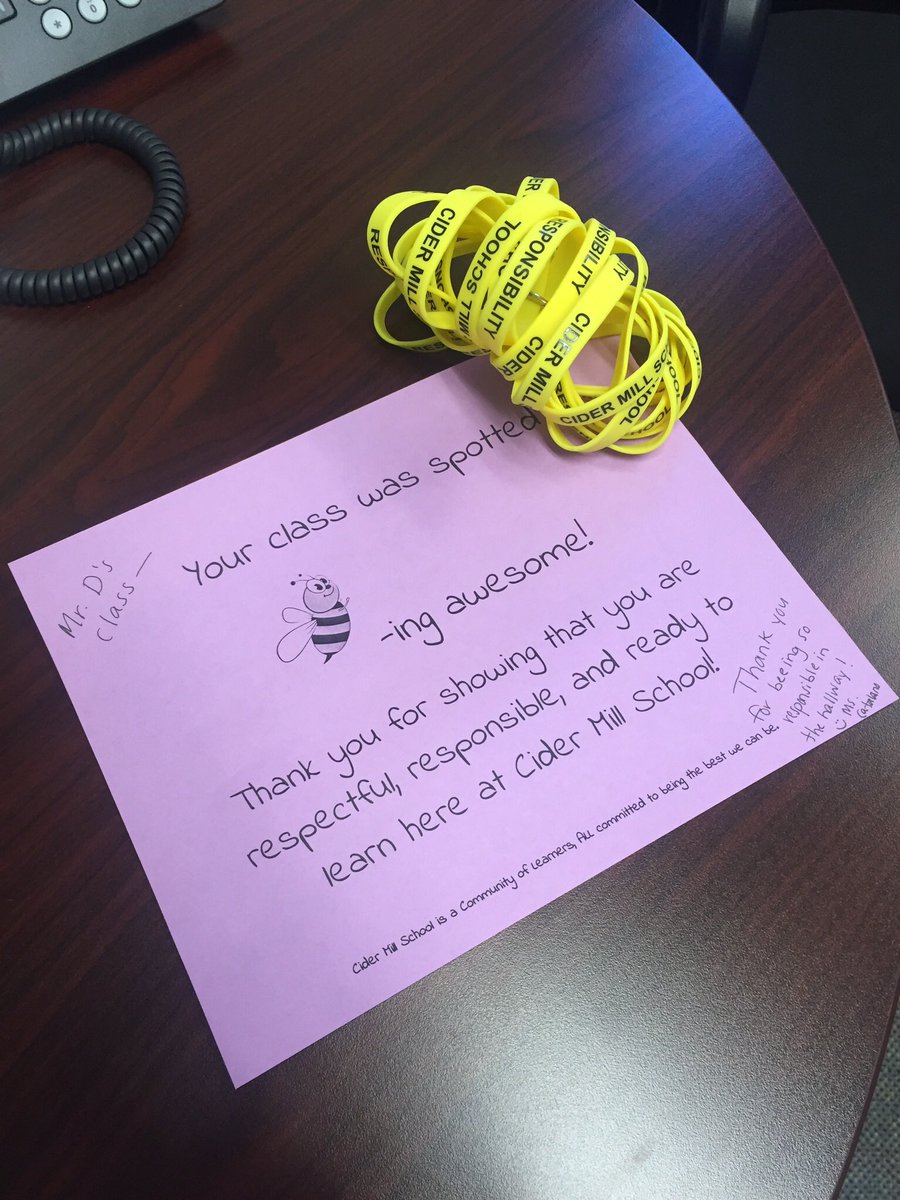 CIDER MILL
SCHOOL
RESPONSIBILITY
NSIBILITY
CIDER MILL
CIDER
CIDER MILL SC
Mr. D's
class —
Your class was spotted
-ing awesome!
Thank you for showing that you are
respectful, responsible, and ready to
learn here at Cider Mill School!
Thank you
for beeing so
responsible in
the hallway!
☺ Ms.
Cider Mill School is a Community of Learners, ALL committed to being the best we can be.